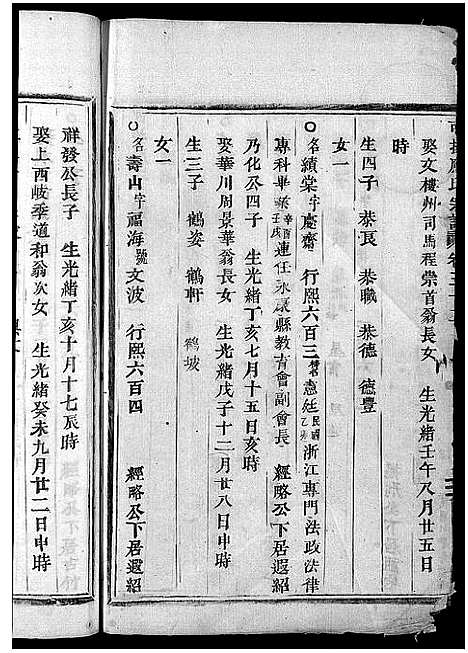 娶文樓州司馬程崇首翁長女 生光緒壬午八月廿五日
時
生四子 恭良 恭職 恭德 德豐
女一
名績棠字慶齋 行熙六百三 號憲廷民國乙卯浙江專門法政法律
專科畢業辛酉連任永康縣教育會副會長 經略公下居遐紹
乃化公四子 生光緒丁亥七月十五日亥時
娶華川周景華翁長女 生光緒戊子十二月廿八日申時
生三子 鶴姿 鶴軒 鶴坡
女一
名壽山字福海號文波 行熙六百四 經略公下居遐紹
祥發公長子 生光緒丁亥十月十七辰時
娶上西岐季道和翁次女 生光緒癸未九月廿二日申時